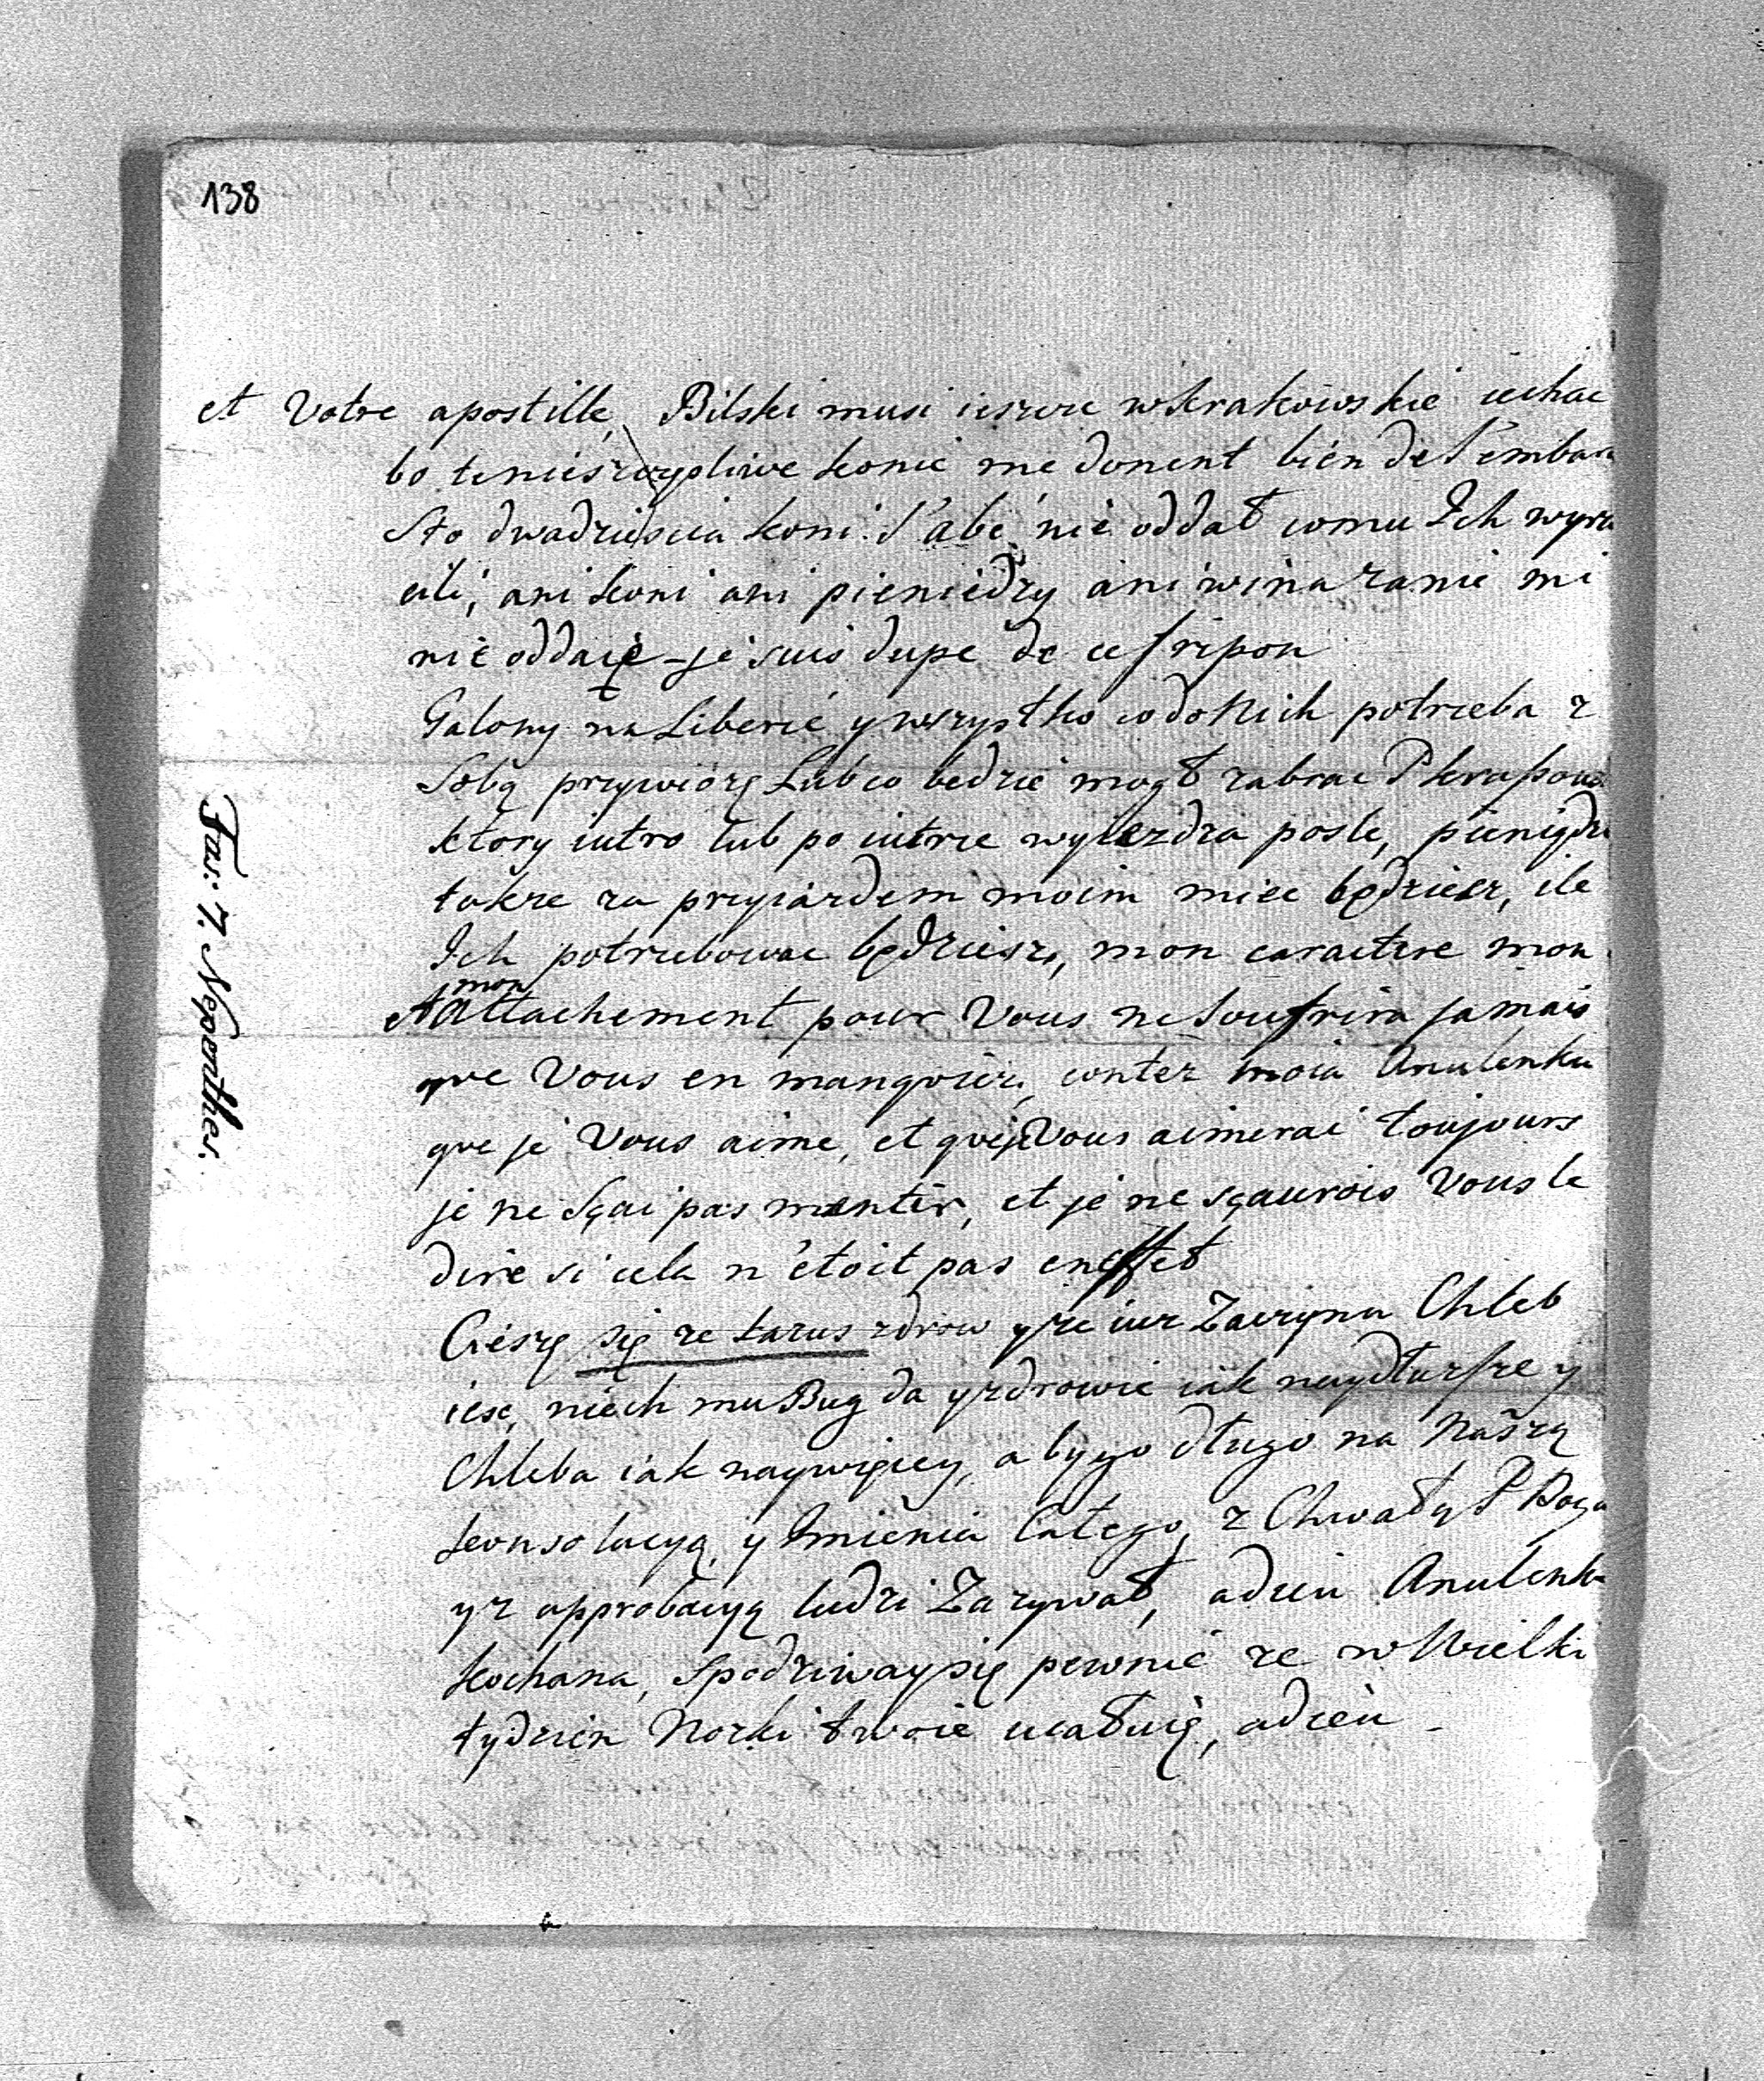 138
et Votre apostille, Bilski musi ieszcze w Krakowskie iechac
bo te niesczęsliwe konie me donent bien de l'embara
Sto dwadziescia koni l'abé nie oddał comu Ich wyzn
cili, ani koni ani pieniedzy ani wina za nie mi
nie oddaię - je suis dupe de ce fripon
Galony na Liberie y wszystko co do Nich potrzeba z
Sobą przywiozę Lub co bedzie mogł zabrac P
ktory iutro lub po iutrze wyiezdza posle, pieniędzi
takze za przyiazdem moim miec będziesz, ile
Ich potrzebowac będziesz, mon caractere mon
et mon Attachement pour Vous ne Soufrira jamais
que Vous en manqviez, contez moia Anulenku
que je Vous aime, et que je Vous aimerai toujours
je ne Sçai pas mentir, et je ne sçaurois Vous le
dire si cela n'étoit pas en effet
Ciészę się ze Lazus zdrow y ze iuz Zaczyna Chleb
iesc, niech mu Bug da y zdrowie iak naydłuzsze y
Chleba iak naywięcy, aby go długo na Naszą
konsolacyą, y Imienia Całego, z Chwałą P Boga
y z approbacyą ludzi Zazywał, adieu Anulenk
kochana, spodziwaysię pewnie ze w Wielki
tydzien Nozki twoie ucałuię, adieu -
Fas: 7. Nepenthes.